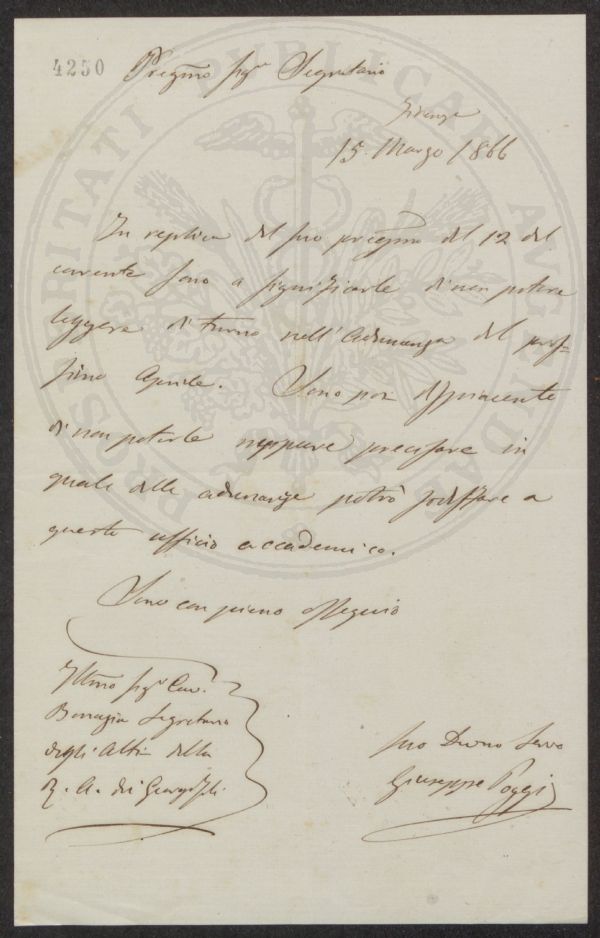 4250
Pregmo Sigre Segretario
Firenze
15. Marzo 1866
In replica del suo pregmo del 12 del
corrente sono a significarle di non potere
leggere di turno nell'Adunanza del pros-
simo Aprile. Sono poi dispiacente
di non poterle neppure precisare in
quale delle adunanze potrò sodisfare a
questo ufficio accademico.
Sono con pieno ossequio
Illmo Sigr Cav.
Segretario
degli Atti della
R. A. dei Georgofili
Suo Devmo Servo
Giuseppe Poggi
PROSPERITATI PUBLICAE AUGENDAE